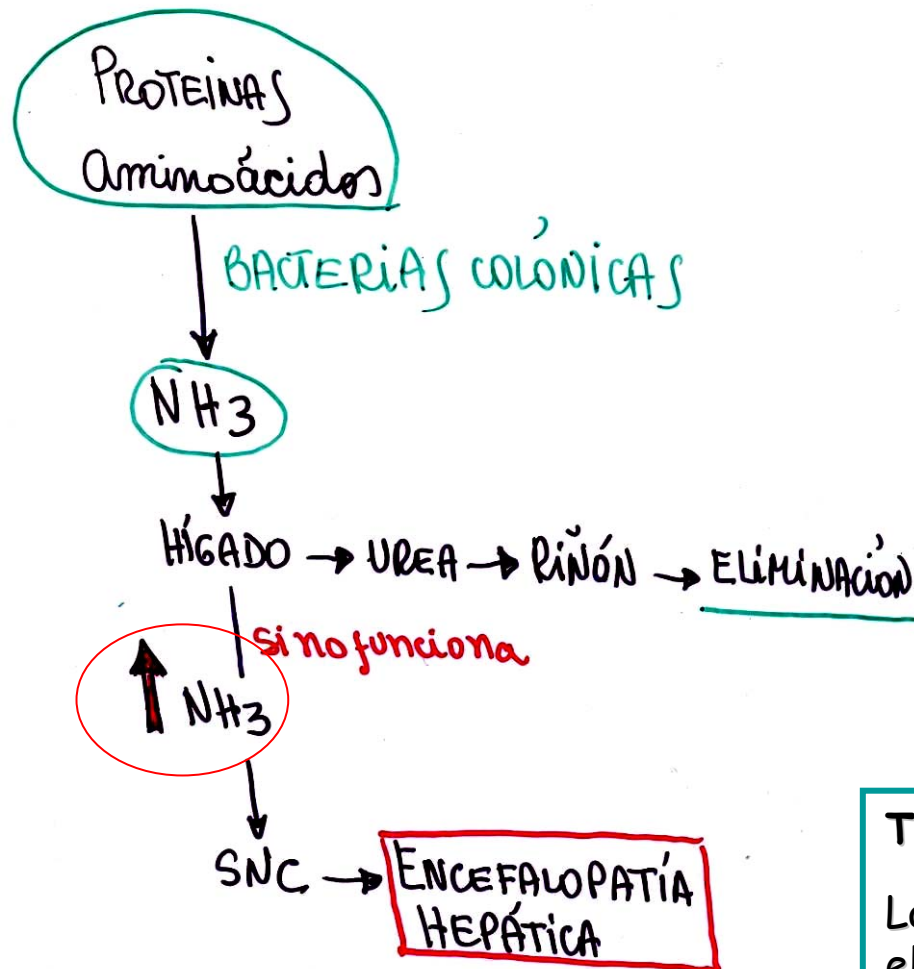 PROTEÍNAS
Aminoácidos
BACTERIAS COLÓNICAS
NH3
HÍGADO → UREA → RIÑÓN → ELIMINACIÓN
si no funciona
↑ NH3
SNC → ENCEFALOPATÍA
HEPÁTICA
T
La
el